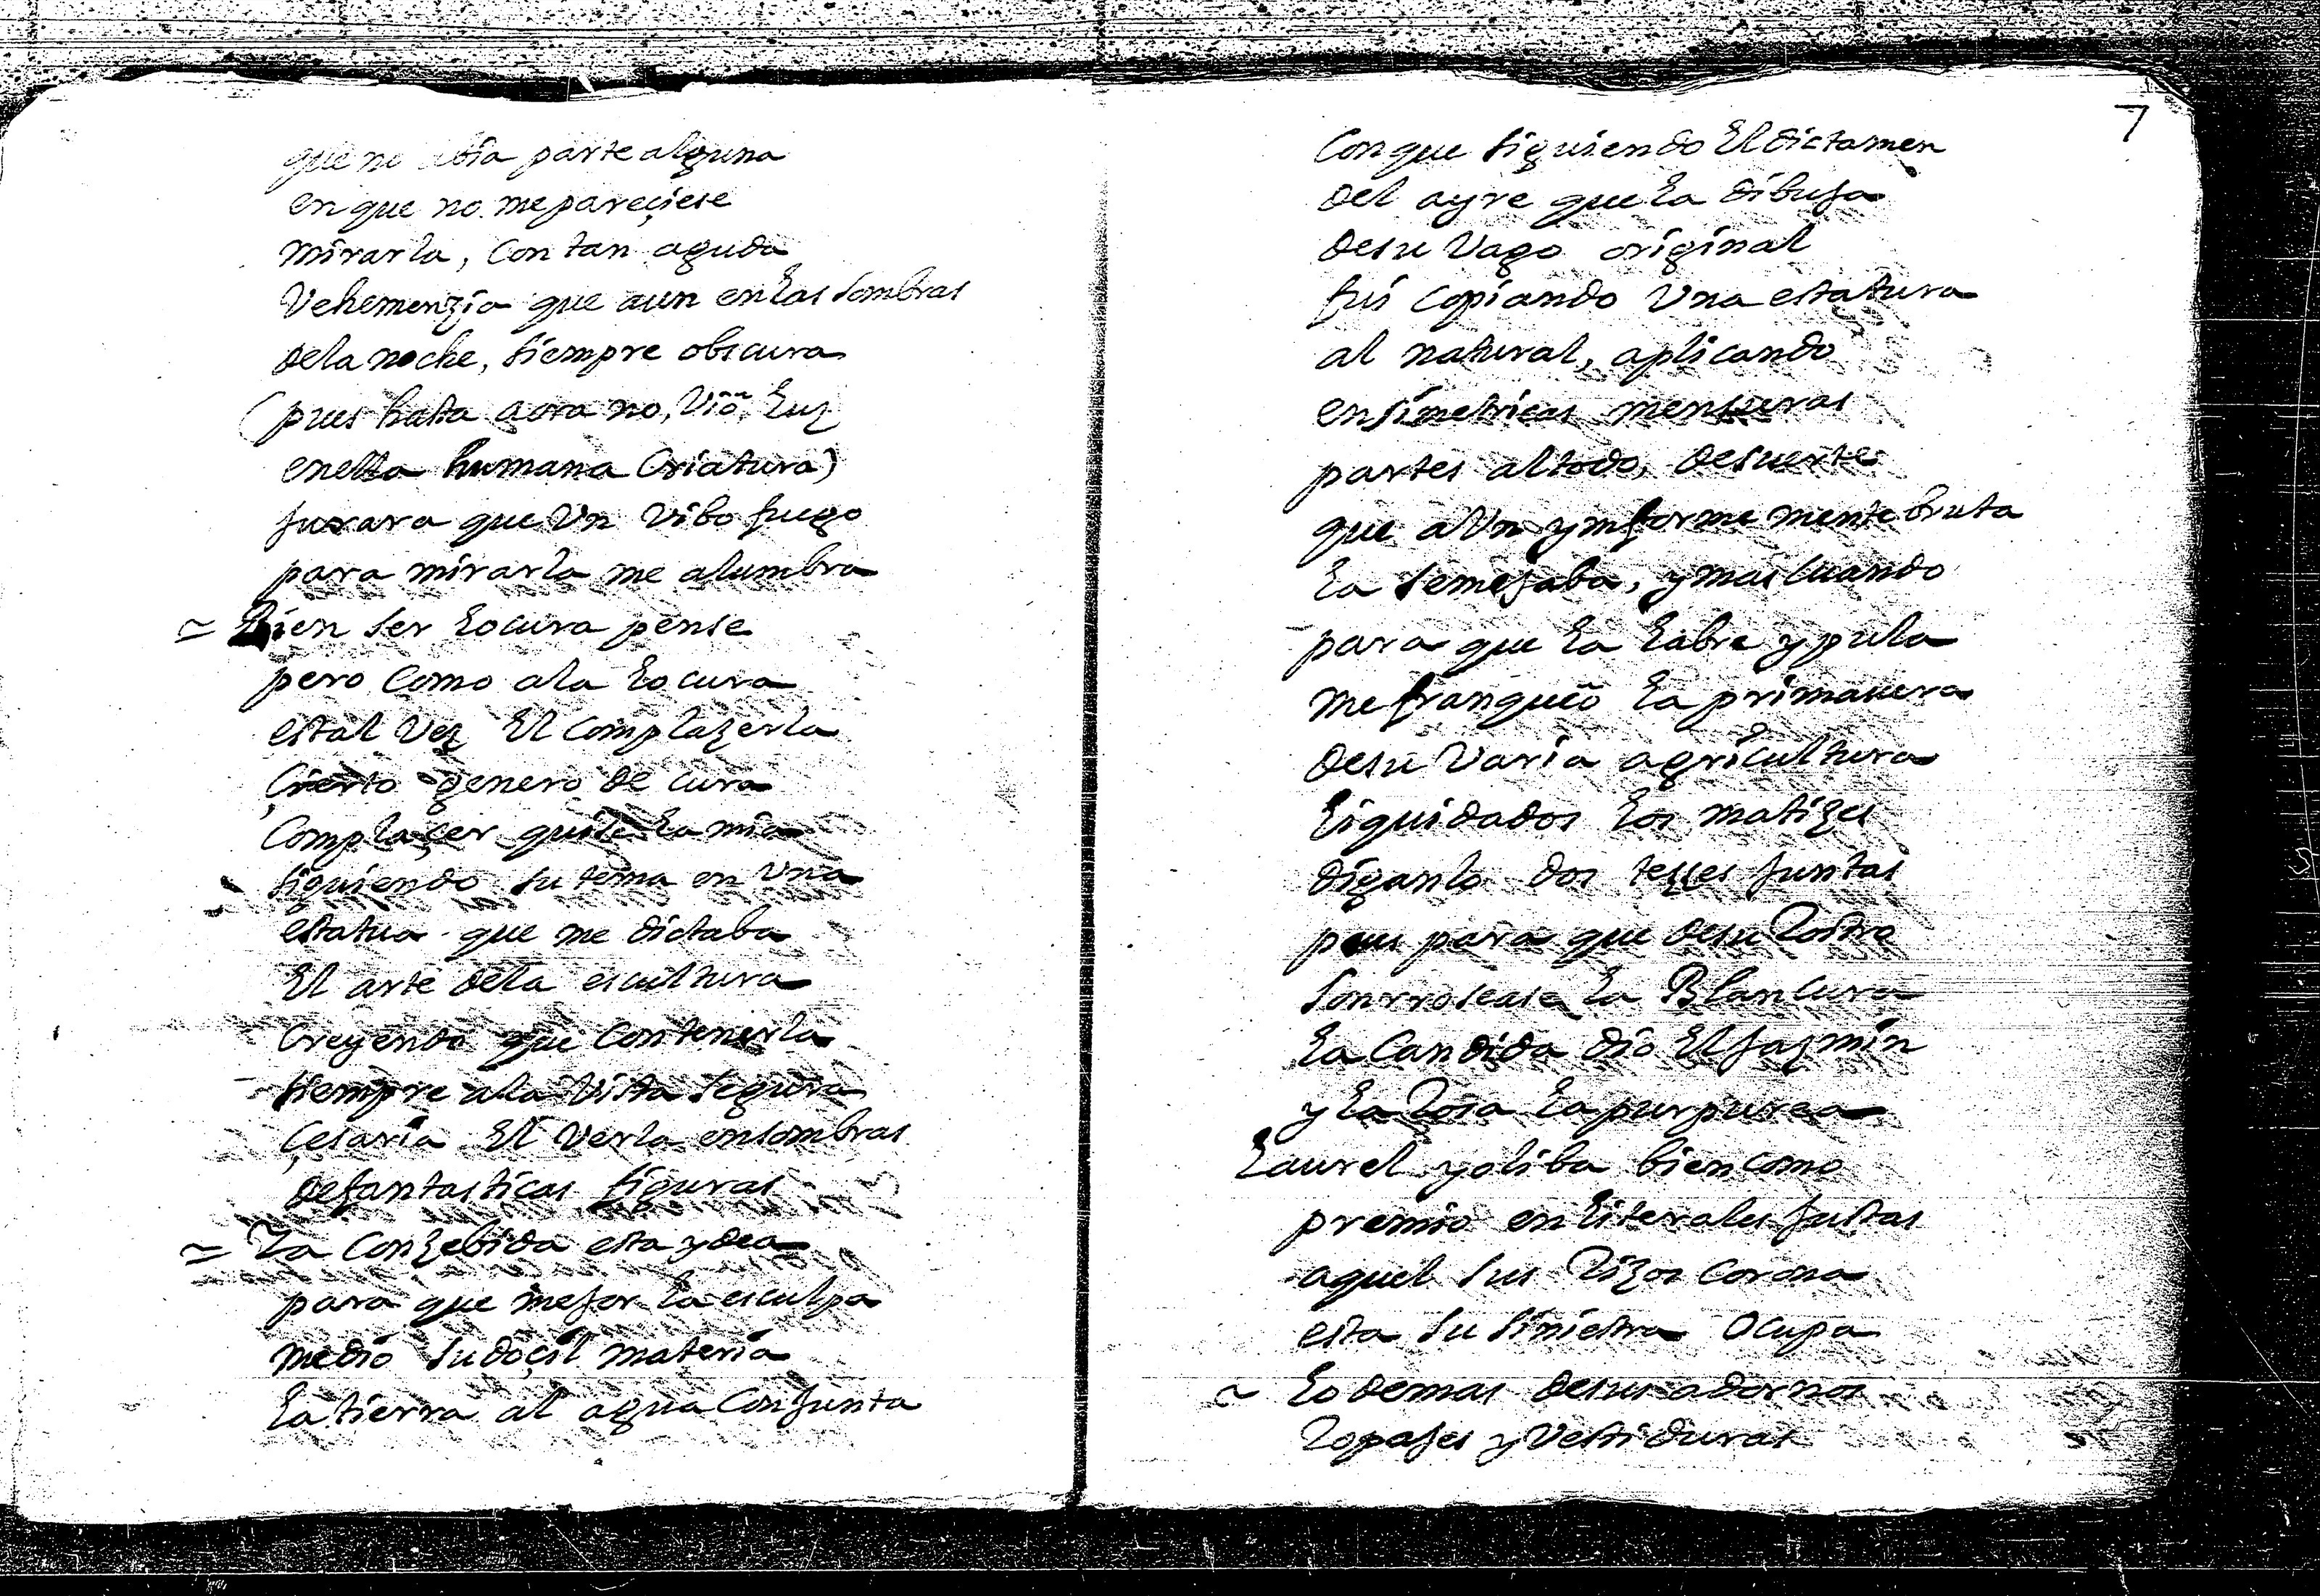 que no abia parte alguna
en que no me pareçiese
mirarla, Con tan aguda
Vehemenzia que aun en las sombras
dela noche, siempre obscura
(pues hasta aora no, Vio, luz
enella humana Criatura)
jurara que Vn Vibo fuego
para mirarla me alumbra
= Bien ser locura pense
pero Como ala locura
estal Vez El Complazerla
Çierto genero de cura
Complaçer quise la mia
siguiendo su tema en Vna
estatua que me dictaba
El arte dela escultura
Creyendo que Contenerla
siempre ala Vista segura
Çesaria El Verla ensombras
defantasticas figuras
= La Conzebida esta ydea
para que mejor la esculpa
medio su doçil materia
la tierra al agua Conjunta
7
Con que siguiendo El dictamen
del ayre que la dibuja
desu Vago original
fui Copiando Vna estatura
al natural, aplicando
ensimetricas mensuras
partes altodo, desuerte
que aVn ynforme mente bruta
la semejaba, y mas cuando
para que la labre y pula
me franqueo la primauera
desu Varia agricultura
liquidados los matizes
diganlo dos tezes juntas
pues para que desu Rostro
sonrrosease la Blancura
la Candida dio El jazmin
y la Rosa la purpurea
Laurel y oliba bien como
premio en literales justas
aquel sus Rizos corona
esta su siniestra Ocupa
~ lo demas desus adornos
Ropajes y Vestiduras